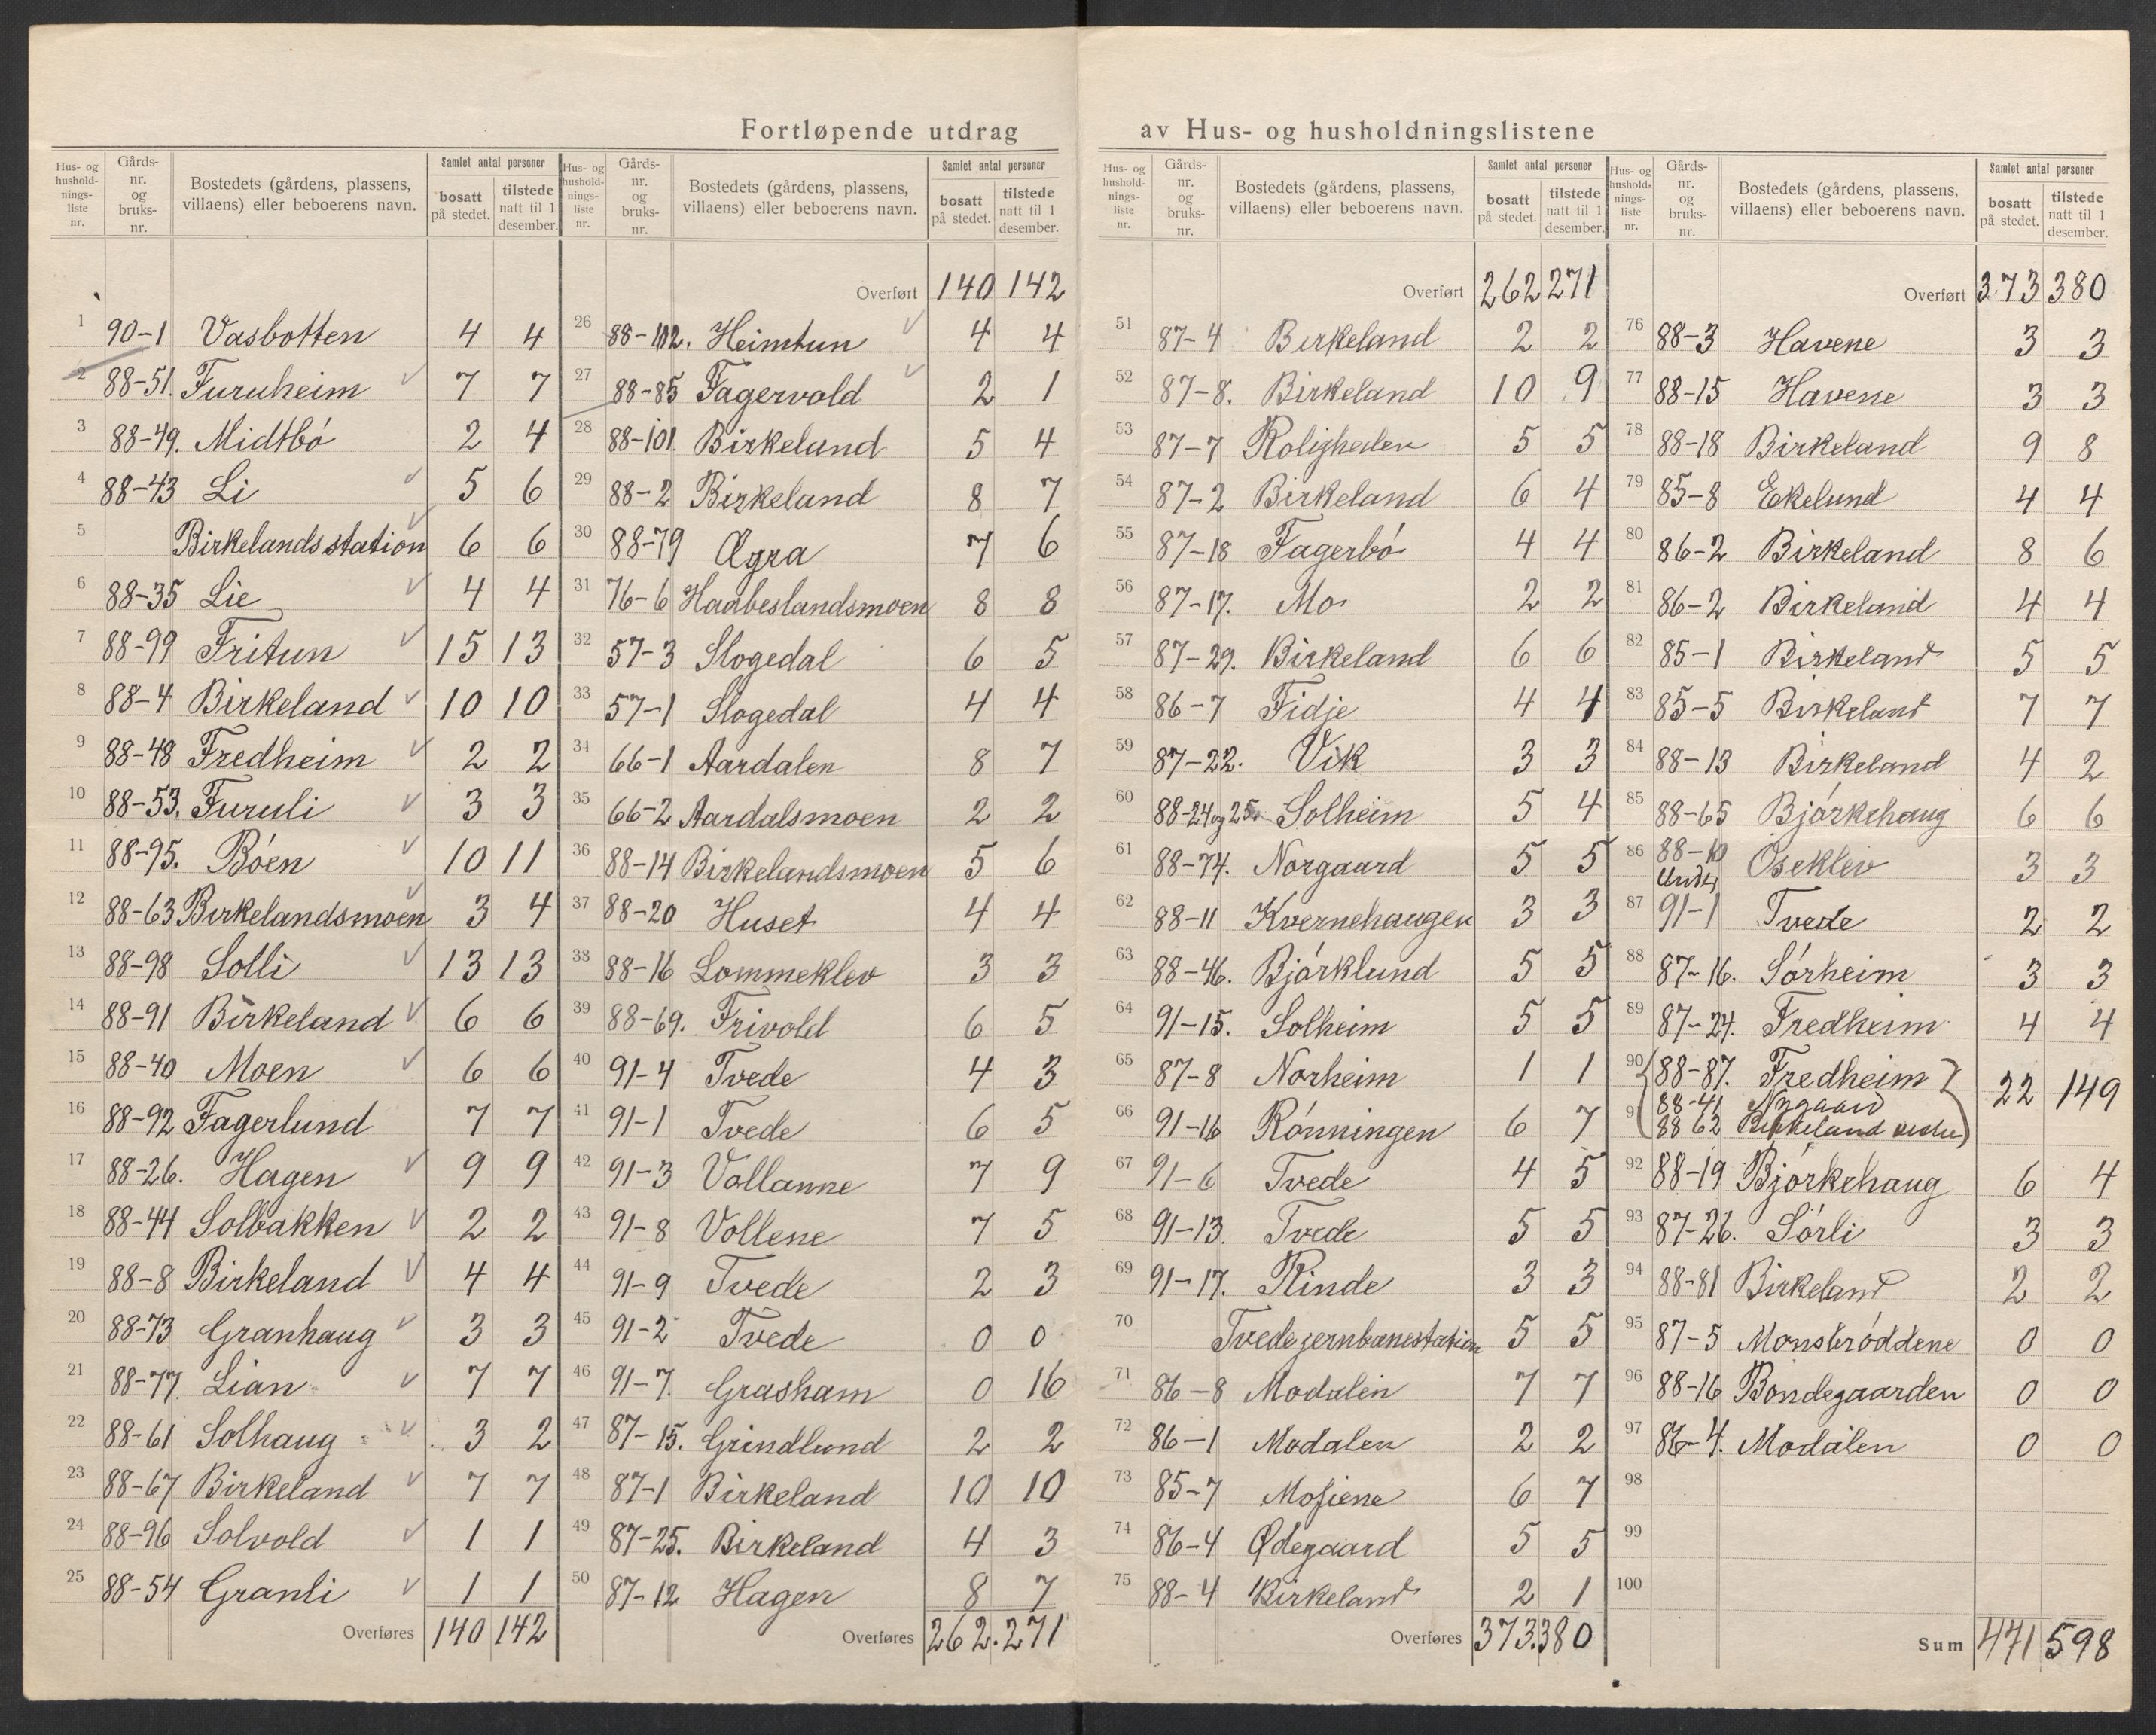 Fortløpende utdrag av Hus- og husholdningslistene
Hus- og husholdnings- liste nr. | Gårds- nr. og bruks- nr. | Bostedets (gårdens, plassens, villaens) eller beboerens navn. | Samlet antal personer | bosatt på stedet. | tilstede natt til 1 desember.
1 90-1 Vasbotten 4 4
2 88-51. Furuheim 7 7
3 88-49. Midtbó 2 4
4 88-43 Li 5 6
5 Birkelands station 6 6
6 88-35 Lie 4 4
7 88-99 Fritun 15 13
8 88-4 Birkeland 10 10
9 88-48 Fredheim 2 2
10 88-53. Furuli 3 3
11 88-95. Bóen 10 11
12 88-63 Birkelandsmoen 3 4
13 88-98 Solli 13 13
14 88-91 Birkeland 6 6
15 88-40 Moen 6 6
16 88-92 Fagerlund 7 7
17 88-26. Hagen 9 9
18 88-44 Solbakken 2 2
19 88-8 Birkeland 4 4
20 88-73 Granhaug 3 3
21 88-77. Lian 7 7
22 88-61 Solhaug 3 2
23 88-67 Birkeland 7 7
24 88-96 Solvold 1 1
25 88-54 Granli 1 1
Overføres 140 142
Hus- og husholdnings- liste nr. | Gårds- nr. og bruks- nr. | Bostedets (gårdens, plassens, villaens) eller beboerens navn. | Samlet antal personer | bosatt på stedet. | tilstede natt til 1 desember.
Overført 140 142
26 88-102. Heimtun 4 4
27 88-85 Fagervold 2 1
28 88-101. Birkeland 5 4
29 88-2 Birkeland 8 7
30 88-79 Øgra 7 6
31 76-6 Haabeslandsmoen 8 8
32 57-3 Slogedal 6 5
33 57-1 Slogedal 4 4
34 66-1 Aardalen 8 7
35 66-2 Aardalsmoen 2 2
36 88-14 Birkelandsmoen 5 6
37 88-20 Huset 4 4
38 88-16 Lommeklev 3 3
39 88-69. Frivold 6 5
40 91-4 Tvede 4 3
41 91-1 Tvede 6 5
42 91-3 Vollanne 7 9
43 91-8 Vollene 7 5
44 91-9 Tvede 2 3
45 91-2 Tvede 0 0
46 91-7. Grasham 0 16
47 87-15. Grindlund 2 2
48 87-1 Birkeland 10 10
49 87-25. Birkeland 4 3
50 87-12 Hagen 8 7
Overføres 262. 271
Hus- og husholdnings- liste nr. | Gårds- nr. og bruks- nr. | Bostedets (gårdens, plassens, villaens) eller beboerens navn. | Samlet antal personer | bosatt på stedet. | tilstede natt til 1 desember.
Overført 262 271
51 87-4 Birkeland 2 2
52 87-8. Birkeland 10 9
53 87-7 Roligheden 5 5
54 87-2 Birkeland 6 4
55 87-18 Fagerbó 4 4
56 87-17. Mo 2 2
57 87-29. Birkeland 6 6
58 86-7 Fidje 4 4
59 87-22. Vik 3 3
60 88-24 og 25. Solheim 5 4
61 88-74. Norgaard 5 5
62 88-11 Kvernehaugen 3 3
63 88-46. Bjórklund 5 5
64 91-15. Solheim 5 5
65 87-8 Norheim 1 1
66 91-16 Rónningen 6 7
67 91-6 Tvede 4 5
68 91-13. Tvede 5 5
69 91-17. Rinde 3 3
70 Tvede jernbanestation 5 5
71 86-8 Modalen 7 7
72 86-1 Modalen 2 2
73 85-7 Mofiene 6 7
74 86-4 Ødegaard 5 5
75 88-4 Birkeland 2 1
Overføres 373. 380
Hus- og husholdnings- liste nr. | Gårds- nr. og bruks- nr. | Bostedets (gårdens, plassens, villaens) eller beboerens navn. | Samlet antal personer | bosatt på stedet. | tilstede natt til 1 desember.
Overført 373 380
76 88-3 Havene 3 3
77 88-15 Havene 3 3
78 88-18 Birkeland 9 8
79 85-8 Ekelund 4 4
80 86-2 Birkeland 8 6
81 86-2 Birkeland 4 4
82 85-1 Birkeland 5 5
83 85-5 Birkeland 7 7
84 88-13 Birkeland 4 2
85 88-65 Bjórkehaug 6 6
86 88-10 Under Óseklev 3 3
87 91-1 Tvede 2 2
88 87-16. Sórheim 3 3
89 87-24. Fredheim 4 4
90 88-87. Fredheim 22 149
88-41 Nygaard
91 88 62 Birkeland
92 88-19 Bjórkehaug 6 4
93 87-26. Sórli 3 3
94 88-81 Birkeland 2 2
95 87-5 Monsbróddene 0 0
96 88-16 Bondegaarden 0 0
97 86-4. Modalen 0 0
98
99
100
Sum 471 598